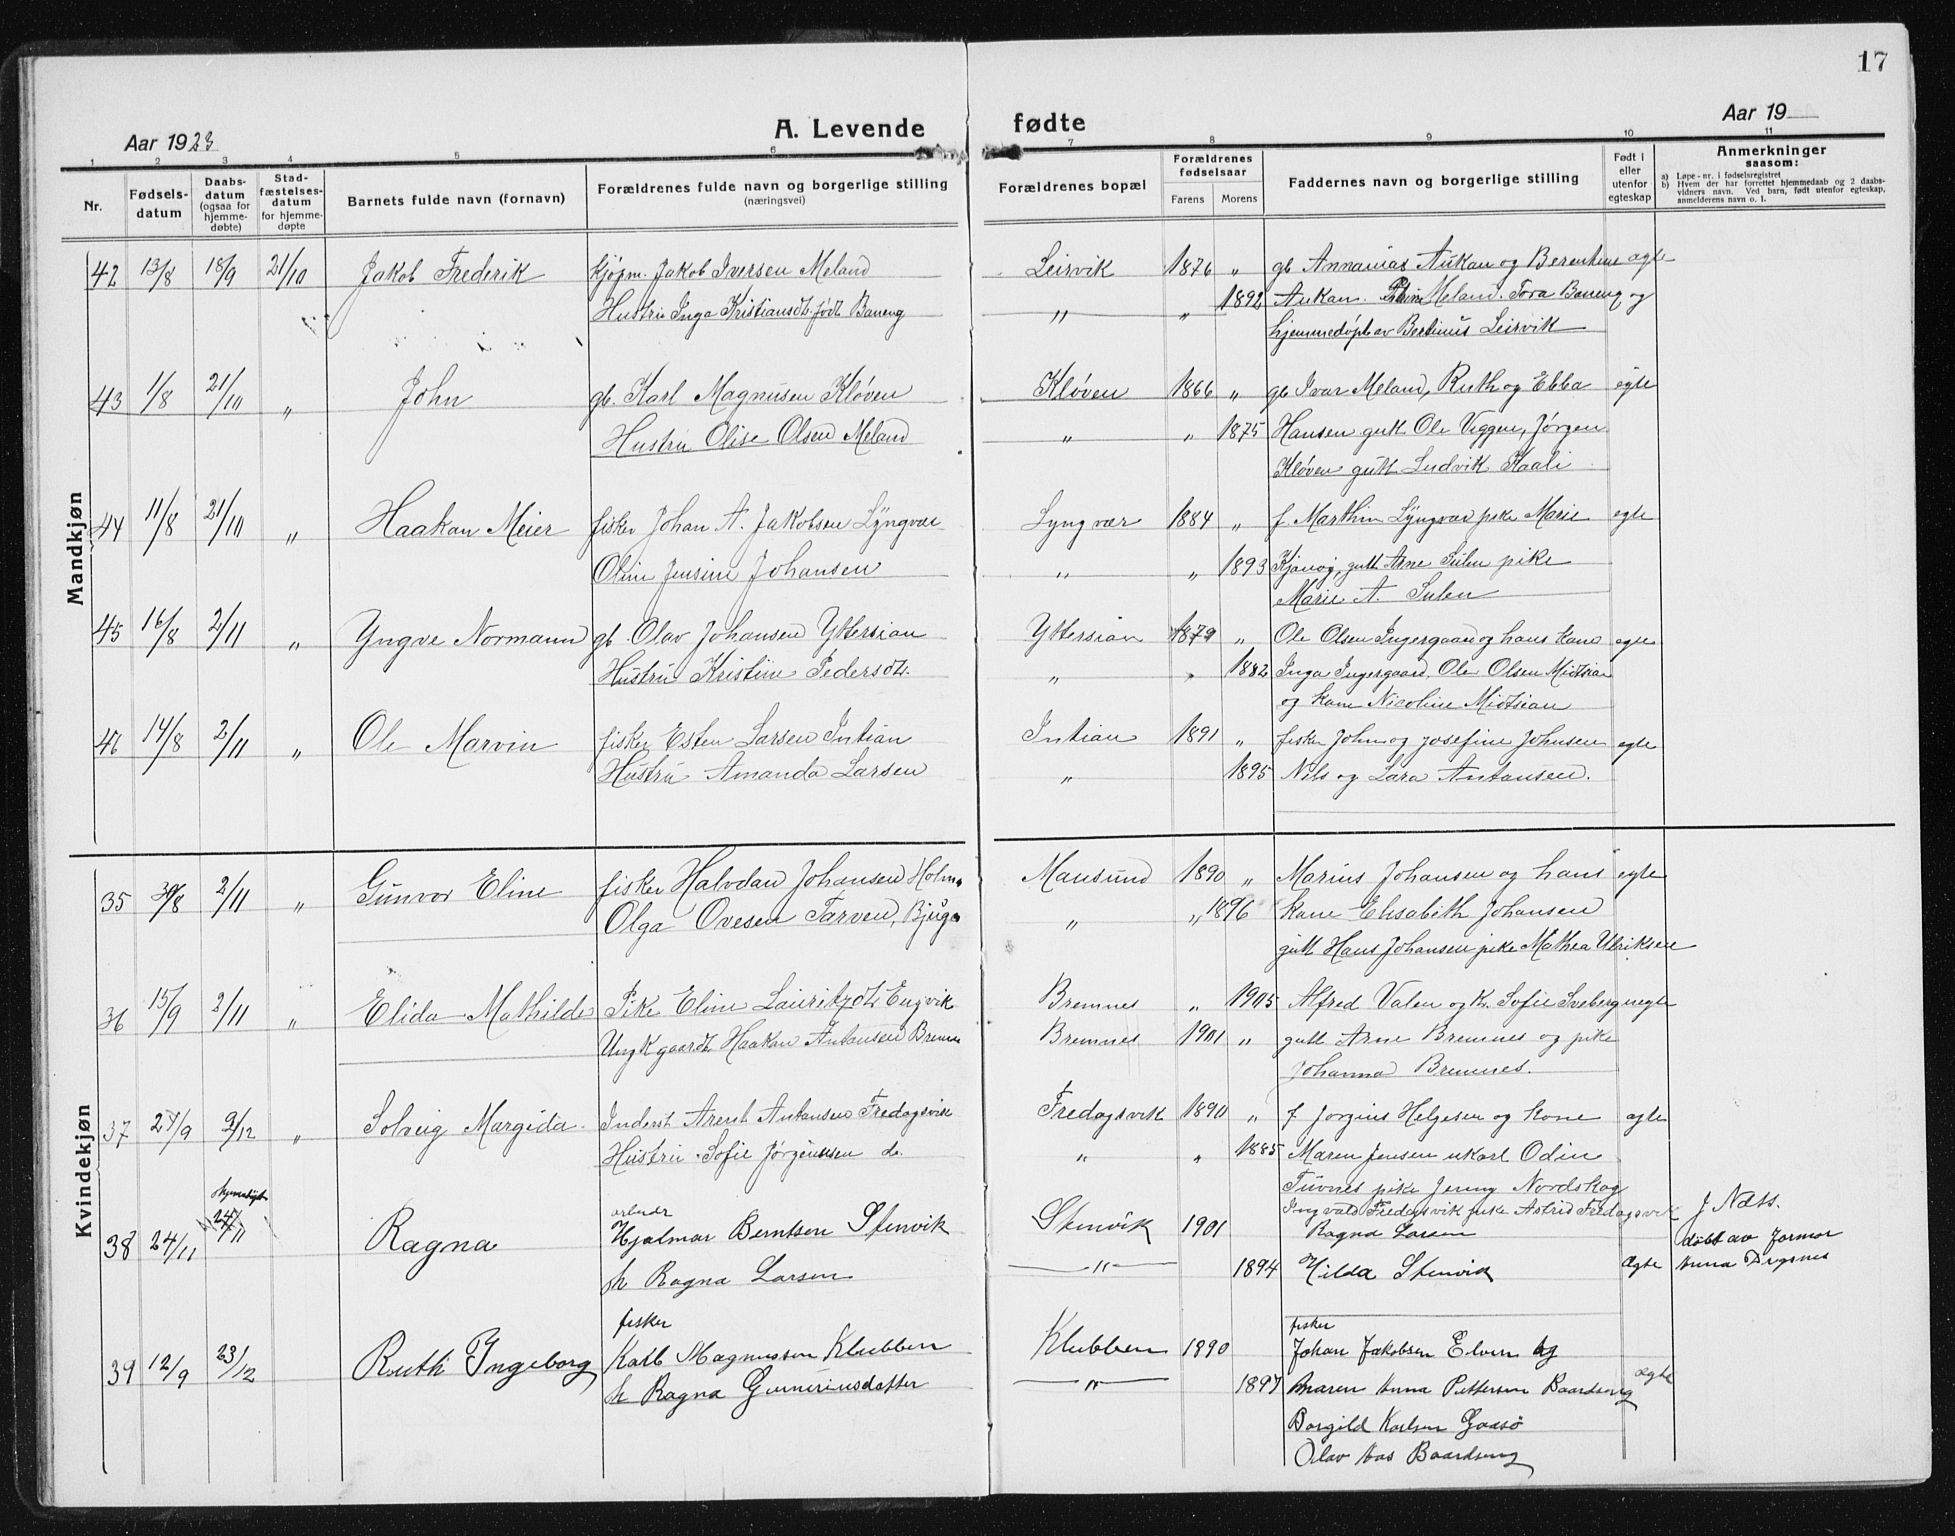 17
Aar 1923
A. Levende fødte
Aar 19
1 2 3 4 5 6 7 8 9 10 11
Nr.
Fødsels-
datum
Daabs-
datum
(ogsaa for
hjemme-
døbte)
Stad-
fæstelses-
datum
for hjemme-
døpte
Barnets fulde navn (fornavn)
Forældrenes fulde navn og borgerlige stilling
(næringsvei)
Forældrenes bopæl
Forældrenes
fødselsaar
Farens Morens
Faddernes navn og borgerlige stilling
Født i
eller
utenfor
egteskap
Anmerkninger
saasom:
a) Løpe-nr. i fødselsregistret
b) Hvem der har forrettet hjemmedaab og 2 daabs-
vidners navn. Ved barn, født utenfor egteskap,
anmelderens navn o. l.
Mandkjøn
42 13/8 18/9 21/10 Jakob Frederik kjøpm. Jakob Iversen Meland Leirvik 1876 " gb Annanias Aukan og Berentine egte
Hustru Inga Kristiansdt. født Baneng " " 1892 Aukan. Meland. Tora Baneng og
hjemmedøpt av Bertinus Leirvik
43 1/8 21/10 " John gb. Karl Magnusen Kløven Kløven 1866 " gb Ivar Meland, Ruth og Ebba egte
Hustru Olise Olsen Meland " " 1875 Hansen gutt Ole Viggen, Jørgen
Kløven gutt Ludvik Kaali
44 11/8 21/10 " Haakon Meier fisker Johan A. Jakobsen Lyngvær Lyngvær 1884 " f. Marthin Lyngvær pike Marie egte
Olin Jensine Johansen " " 1893 gutt Arne Sulen pike
Marie A. Sulen
45 16/8 2/11 " Yngve Normann gb. Olav Johansen Yttersian Yttersian 1879 " Ole Olsen Ingergaard og hans kone egte
Hustru Kristine Pedersdt. " " 1882 Inga Ingergaard, Ole Olsen Midtsian
og kone Nicoline Midtsian
46 14/8 2/11 " Ole Marvin fisker Esten Larsen Intian Intian 1891 " fisker John og Josefine Johnsen egte
Hustru Amanda Larsen " 1895 Nils og Lara Antonsen.
Kvindekjøn
35 30/8 2/11 " Gunvor Eline fisker Halvdan Johansen Holm Mausund 1890 " Marius Johansen og hans egte
Olga Ovesen Tarven, Bjugn " " 1896 kone Elisabeth Johansen
gutt Hans Johansen pike Mathea Ulriksen
36 15/9 2/11 " Elida Mathilde Pike Eline Lauritzdt. Engvik Bremnes " 1905 Alfred Valen og K. Sofie Sveberg uegte
Ungk gaardt. Haakon Antonsen Bremnes Bremnes 1901 " gutt Arne Bremnes og pike
Johanna Bremnes.
37 24/9 9/12 " Solveig Margida Inderst Arent Antonsen Fredagsvik Fredagsvik 1890 " f Jorgius Helgesen og kone egte
Hustru Sofie Jørgensen do. " " 1885 Maren Jensen ukarl Odin
Tuvnes pike Jenny Nordskog
Ingvald Fredagsvik pike Astrid Fredagsvik
38 24/11 hjemedøbt 24/11 Ragna arbeidr Hjalmar Berntsen Stenvik Stenvik 1901 Ragna Larsen J Næss.
h Ragna Larsen " 1894 Hilda Stenvik Ægte døbt av Jormor
Anna Drgsnes
39 12/9 23/12 Ruth Ingeborg fisker Karl Magnussen Klubben Klubben 1890 fisker Johan Jakobsen Elven og ægte
h Ragna Gunneriusdatter " 1897 Maren Anna Pettersen Baardseng
Borgild Karlsen Gaasø
Olav Aas Baardseng